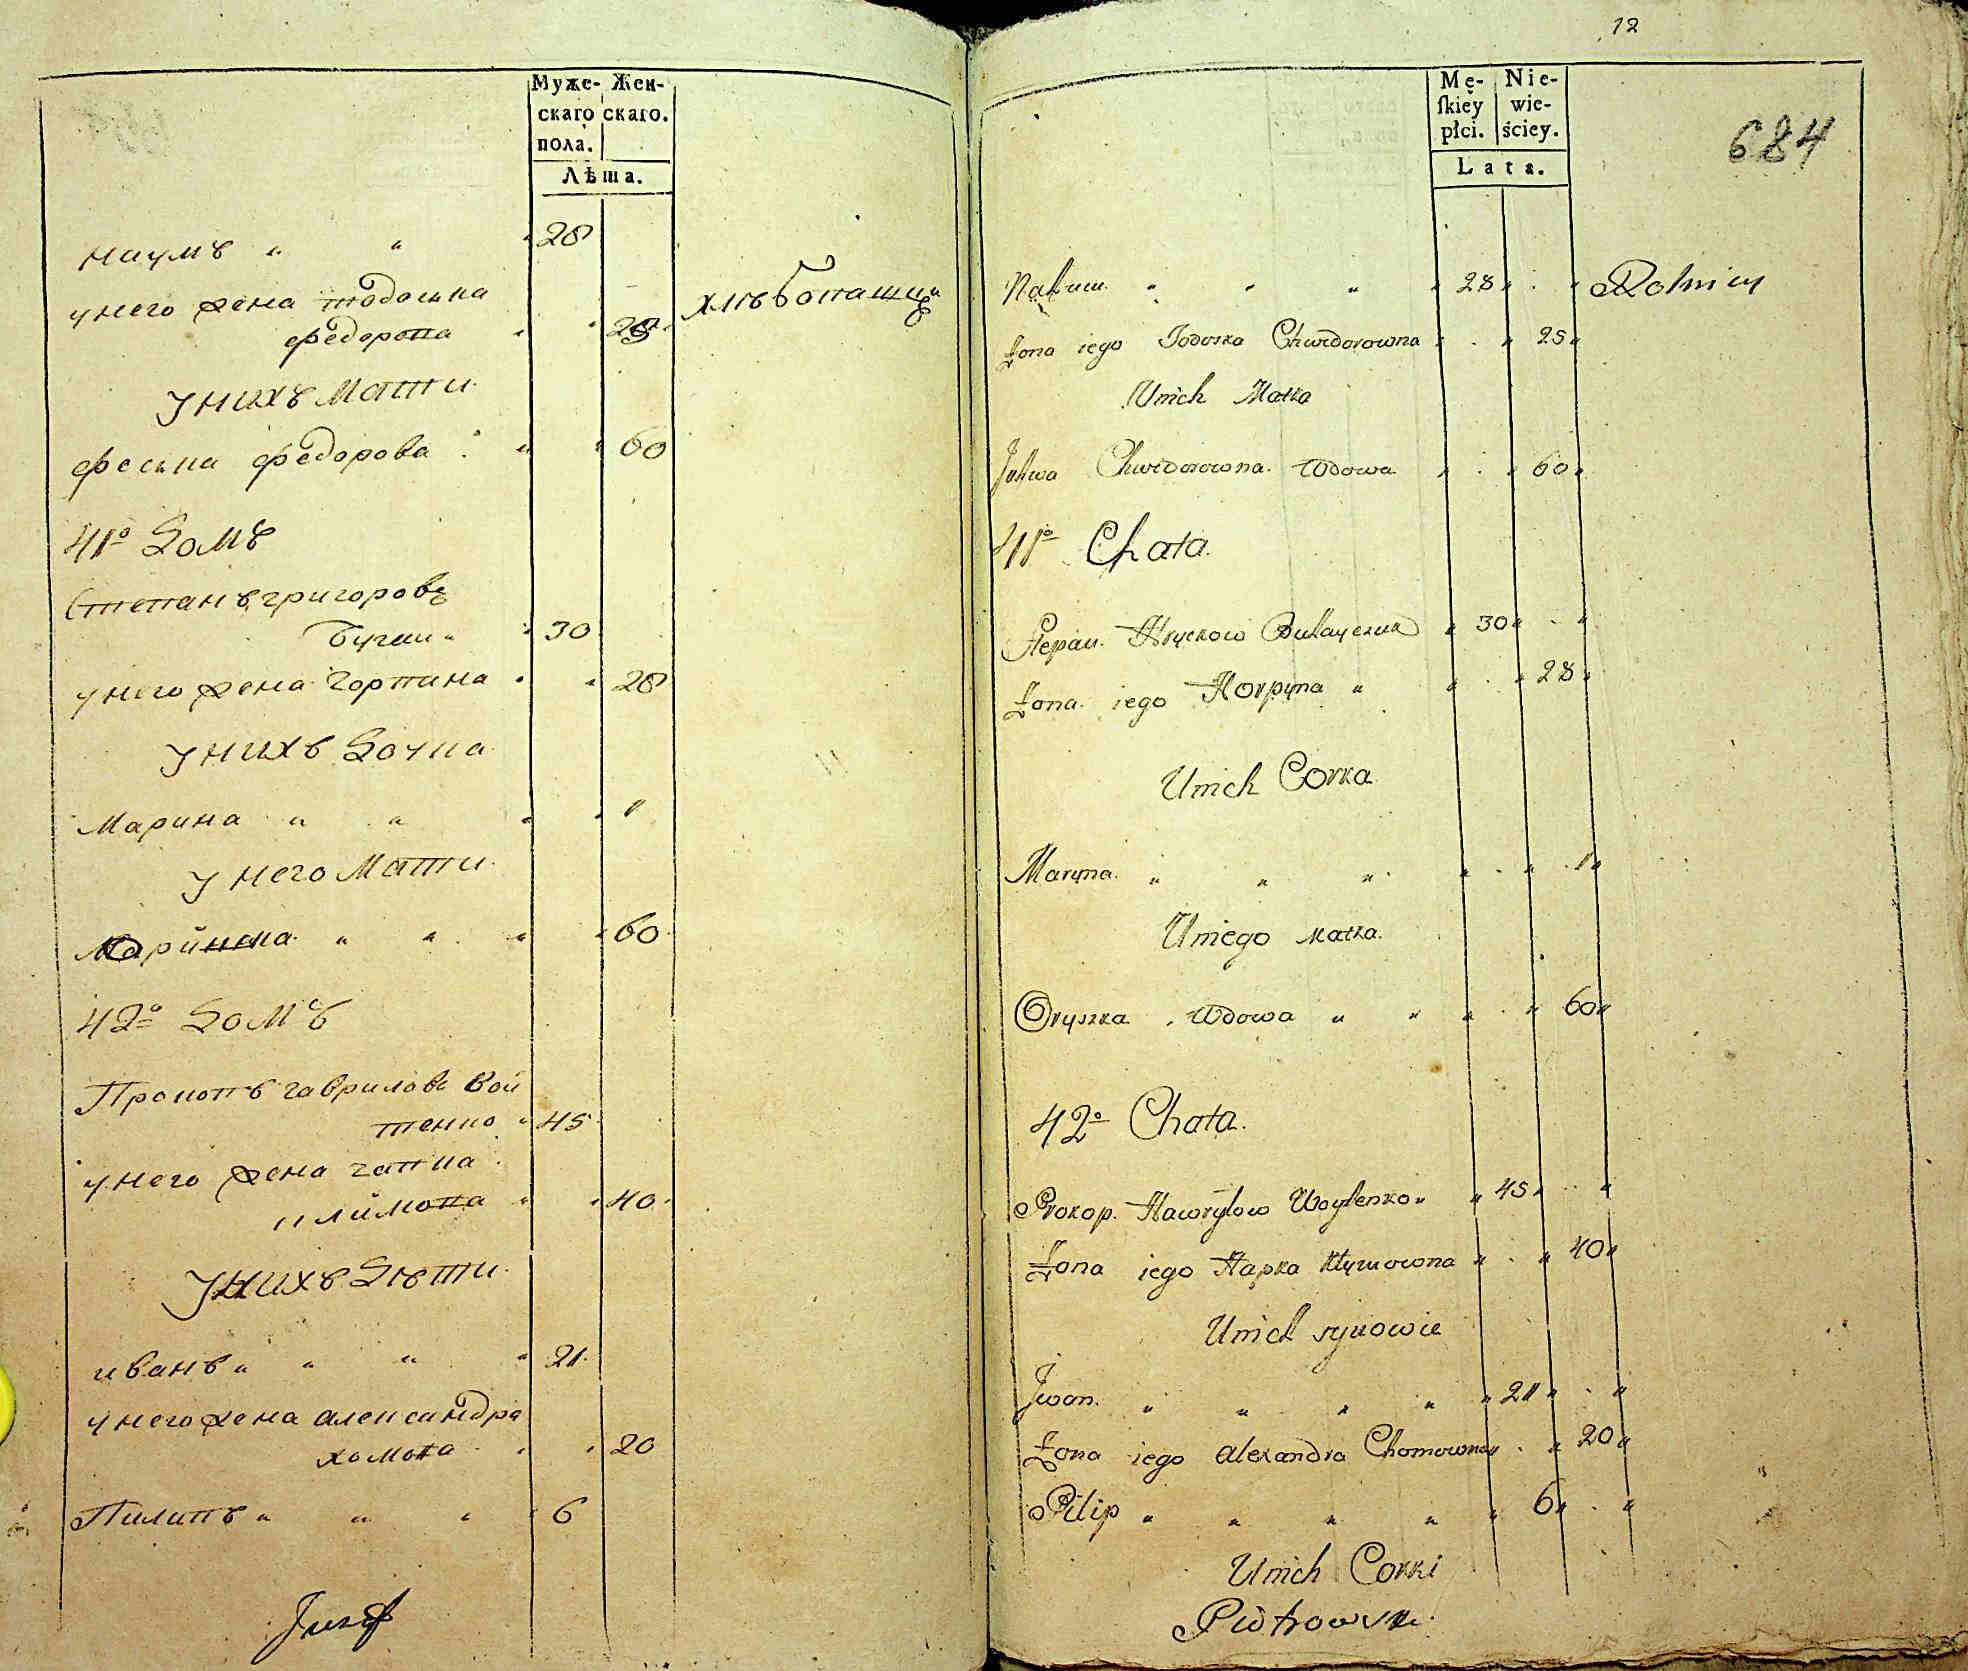 Муже- Жен-
скаго скаго.
пола.
Лѣта.
Наумъ " " " 28
у него жена тодоська
федорова " " 25
хлѣбопашцы
у нихъ мати
феська федорова " " 60
41º Домъ
Степанъ григоровъ
бугаи " " 30
у него жена горпина " " 28
у нихъ дочка
Марина " " " " 1
у него мати
" " " " 60
42º Домъ
Прокопъ гавриловъ Вой
тенко " 45
у него жена гапка
климова " " 40
у нихъ дѣти
иванъ " " " " 21
у него жена александра
хомова " " 20
Пилипъ " " " " 6
Jozef
12
684
Mę- Nie-
skiey wie-
płci. ściey.
Lata.
Nahum " " " " 28 " . " Rolnicy
Żona iego Todoska Chwedorowna " . " 25 "
U nich Matka
Chwedorowna Wdowa " . " 60 "
41º Chata.
Stepan Hryckow " 30 " . "
Żona iego Horpyna " " . " 28 "
U nich Corka
Maryna " " " " . " 1 "
U niego matka
Oryszka Wdowa " " " . " 60 "
42º Chata.
Prokop Hawryłow Woytenko " " 45 " . "
Żona iego Hapka Kłymowna " . " 40 "
U nich synowie
Jwan " " " " " 21 " . "
Żona iego Alexandra Chomowna " . " 20 "
Pilip " " " " " 6 " . "
U nich Corki
Piotrowski